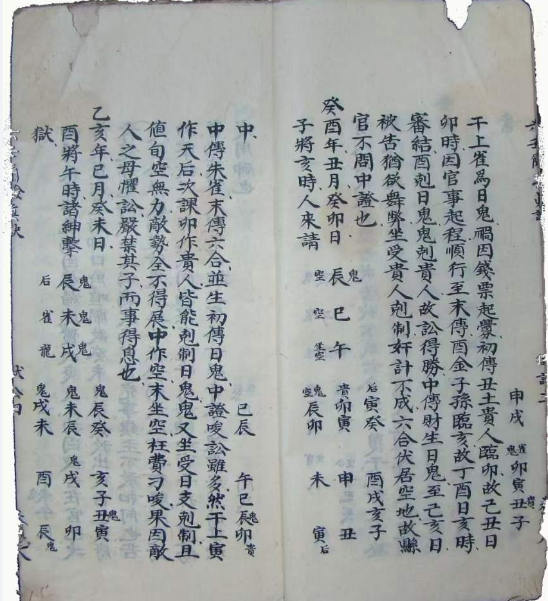 申戌 卯寅丑子
干上雀為日鬼禍因錢票起釁初傳丑土貴人臨卯故己丑日
卯時因官事起程順行至末傳酉金子孫臨亥故丁酉日亥時
審結酉剋日鬼鬼剋貴人故訟得勝中傳財生日鬼至己亥日
被告猶欲舞弊坐受貴人剋制奸計不成六合伏居空地故縣
官不問中證也
癸酉年丑月癸卯日
子將亥時人來請
鬼 空辰 空巳 午
貴卯寅 后寅癸
鬼空辰卯 申未 酉戌亥子
丑寅后
中傳朱雀末傳六合並生初傳日鬼中證唆訟雖多然干上寅
作天后次課卯作貴人皆能剋制日鬼鬼又坐受日支剋制且
値旬空無力敵勢全不得展中作空末坐空枉費刁唆果因敵
人之母懼訟嚴禁其子兩事得息也
中
巳辰 午巳辰卯貴
乙亥年巳月癸未日
酉將午時諸紳擊
獄
鬼辰后 鬼未雀 鬼戌龍
鬼辰癸 鬼未辰 鬼戌未
亥子丑寅 戌卯 酉辰